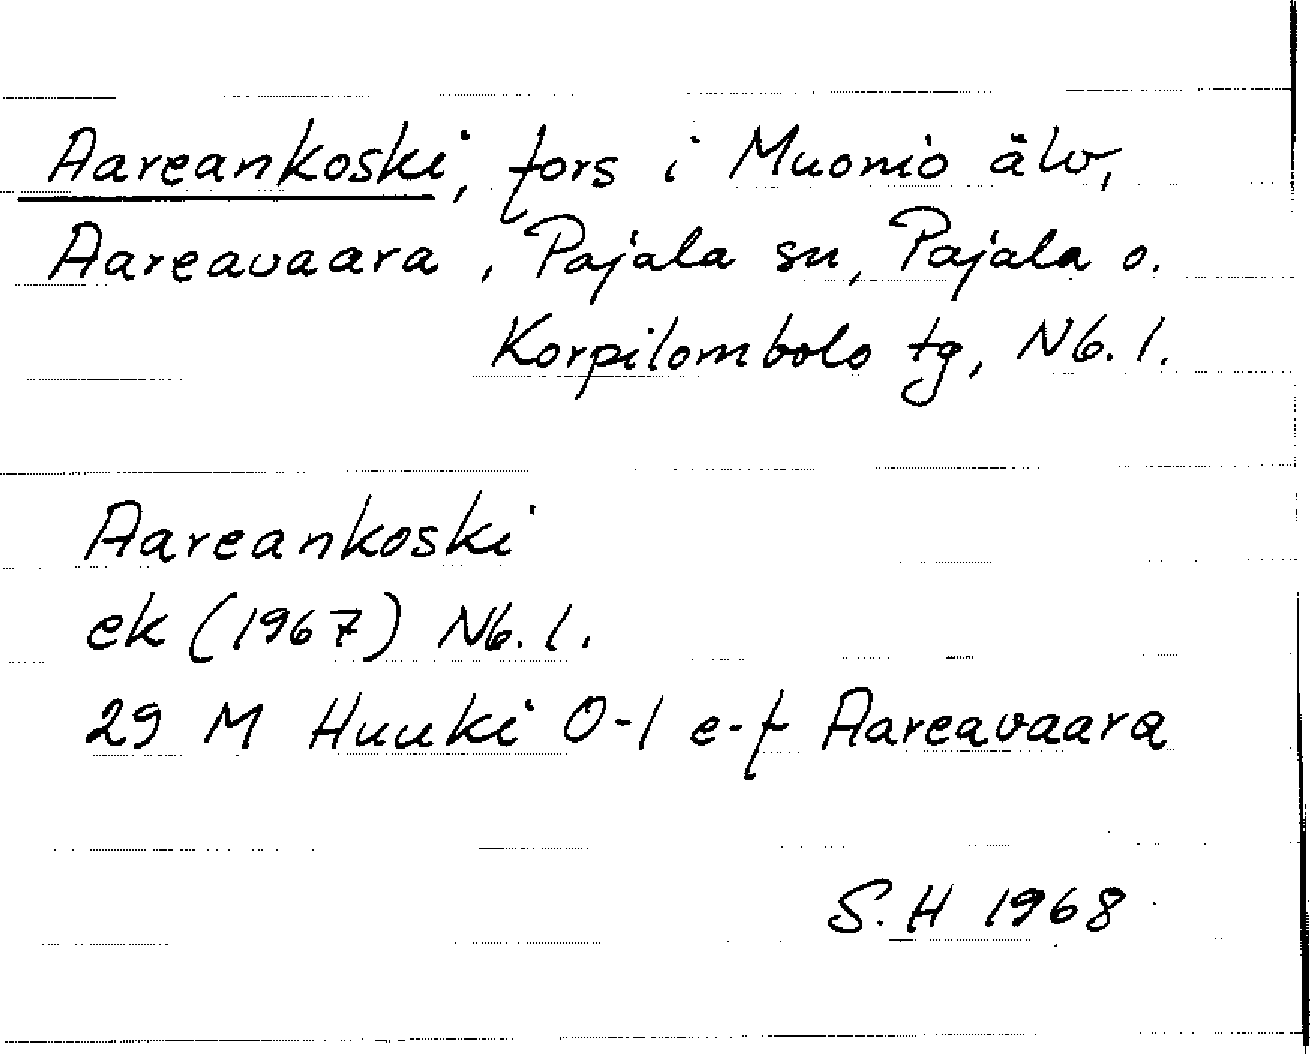 Aareankoski, fors i Muonio älv,
Aareavaara, Pajala sn, Pajala o.
Korpilombolo tg, Nb. l.
Aareankoski
ek (1967) Nb. l.
29 M Huuki O-l e-f Aareavaara
S.H 1968